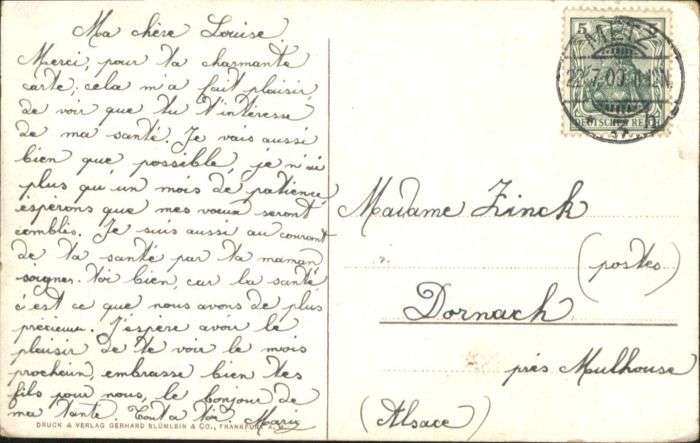 Ma chère Louise
Merci, pour ta charmante
carte; cela m'a fait plaisir
de voir que tu t'intéresse
de ma santé. Je vais aussi
bien que possible, je n'ai
plus qu'un mois de patience
ésperons que mes vœux seront
comblés. Je suis aussi au courant
de ta santé par ta maman
soignes. toi bien, car la santé
c'est ce que nous avons de plus
precieux. J'espère avoir le
plaisir de te voir le mois
prochain, embrasse bien tes
fils pour nous, le bonjour de
ma tante. Tout a toi. Marie
DRUCK & VERLAG GERHARD BLÜMLEIN & CO., FRANKFURT
5
METZ
DEUTSCHES REICH
Madame Zinck
(postes)
Dornach
près Mulhouse
(Alsace)